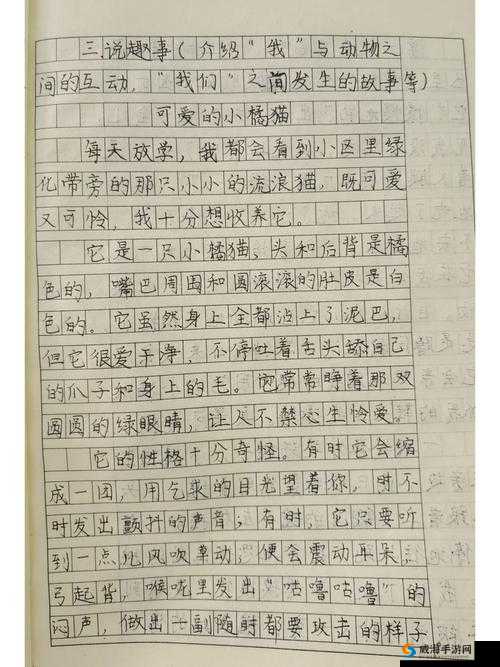 三.说趣事(介绍“我”与动物之
间的互动,“我们”之间发生的故事等)
可爱的小橘猫
每天放学,我都会看到小区里绿
化带旁的那只小小的流浪猫,既可爱
又可怜,我十分想收养它。
它是一只小橘猫,头和后背是橘
色的,嘴巴周围和圆滚滚的肚皮是白
色的。它虽然身上全都沾上了泥巴,
但它很爱干净,不停吐着舌头舔自己
的爪子和身上的毛。它常常睁着那双
圆圆的绿眼睛,让人不禁心生怜爱。
它的性格十分奇怪。有时它会缩
成一团,用乞求的目光望着你,时不
时发出颤抖的声音;有时,它只要听
到一点儿风吹草动,便会震动耳朵,
弓起背,喉咙里发出“咕噜咕噜”的
闷声,做出一副随时都要攻击的样子
威海手游网